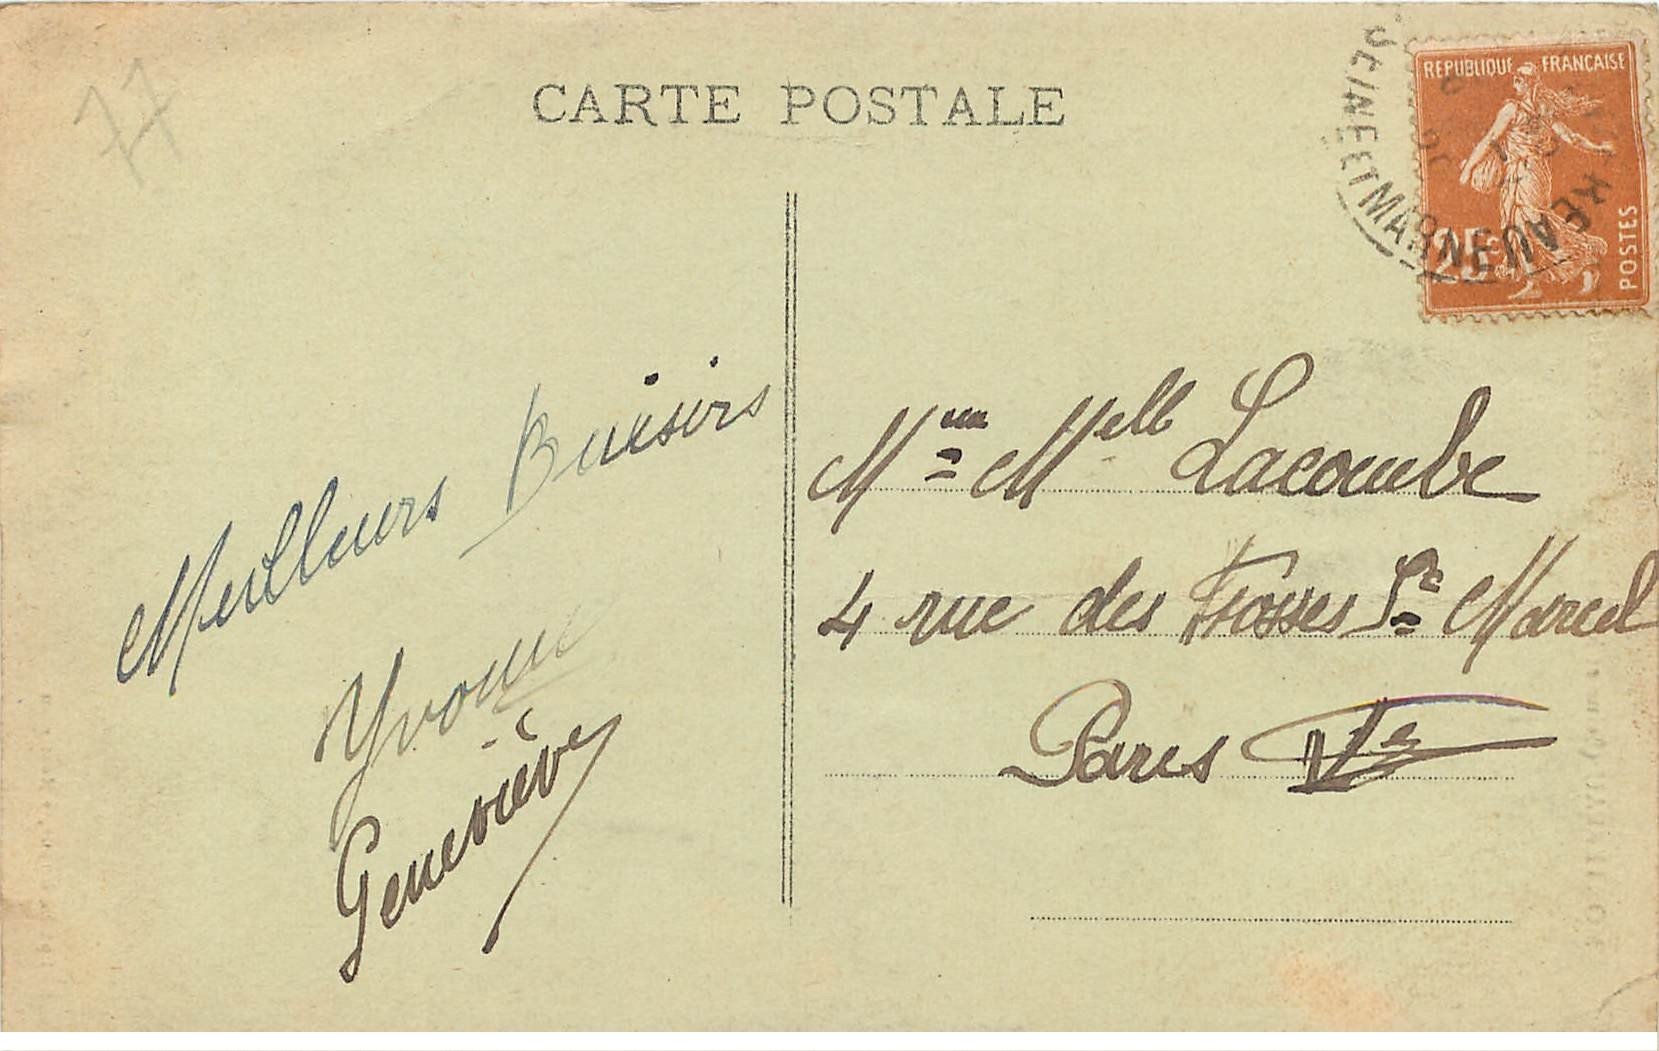 77
CARTE POSTALE
REPUBLIQUE FRANCAISE
25c
POSTES
SEINE ET MARNE
Meilleurs Baisers
Yvonne
Geneviève
Mme Mell Lacombe
4 rue des Fossés St Marcel
Paris Ve